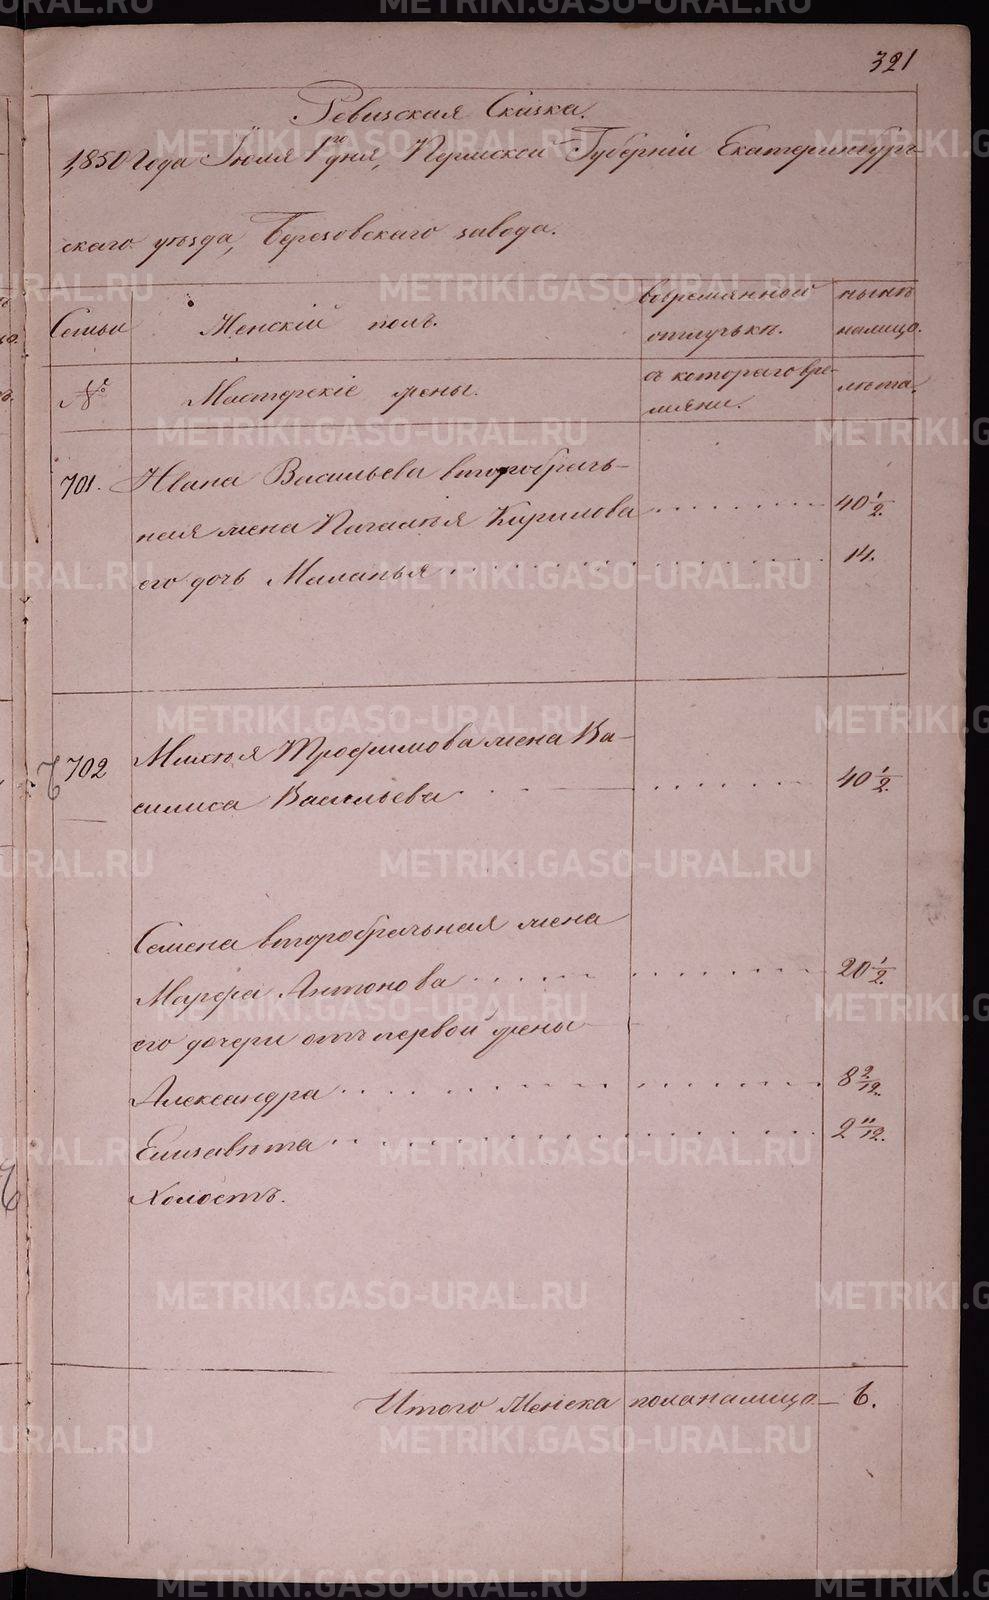 321
Ревизская Сказка.
1850 Года Іюля 1го дня, Пермской Губерніи Екатеринбург-
скаго уѣзда, Березовскаго завода.
Семьи
Женскій полъ.
вовремянной
отлучькѣ.
нынѣ
налицо.
№
Мастерскіе жены.
съ котораго вре-
мяни.
лѣта.
701. Ивана Васильева второбрачь-
ная жена Пагаліѣя Кирилова 40 1/2.
его дочь Маланья 14.
702 Михѣя Трофимова жена Ва-
силиса Васильева 40 1/2.
Семена второбрачьная жена
Марфа Антонова 20 1/2.
его дочери отъ первой жены
Александра 8 2/12.
Елизавѣта 2 11/12.
Холостъ.
Итого Женска пола налицо 6.
METRIKI.GASO-URAL.RU